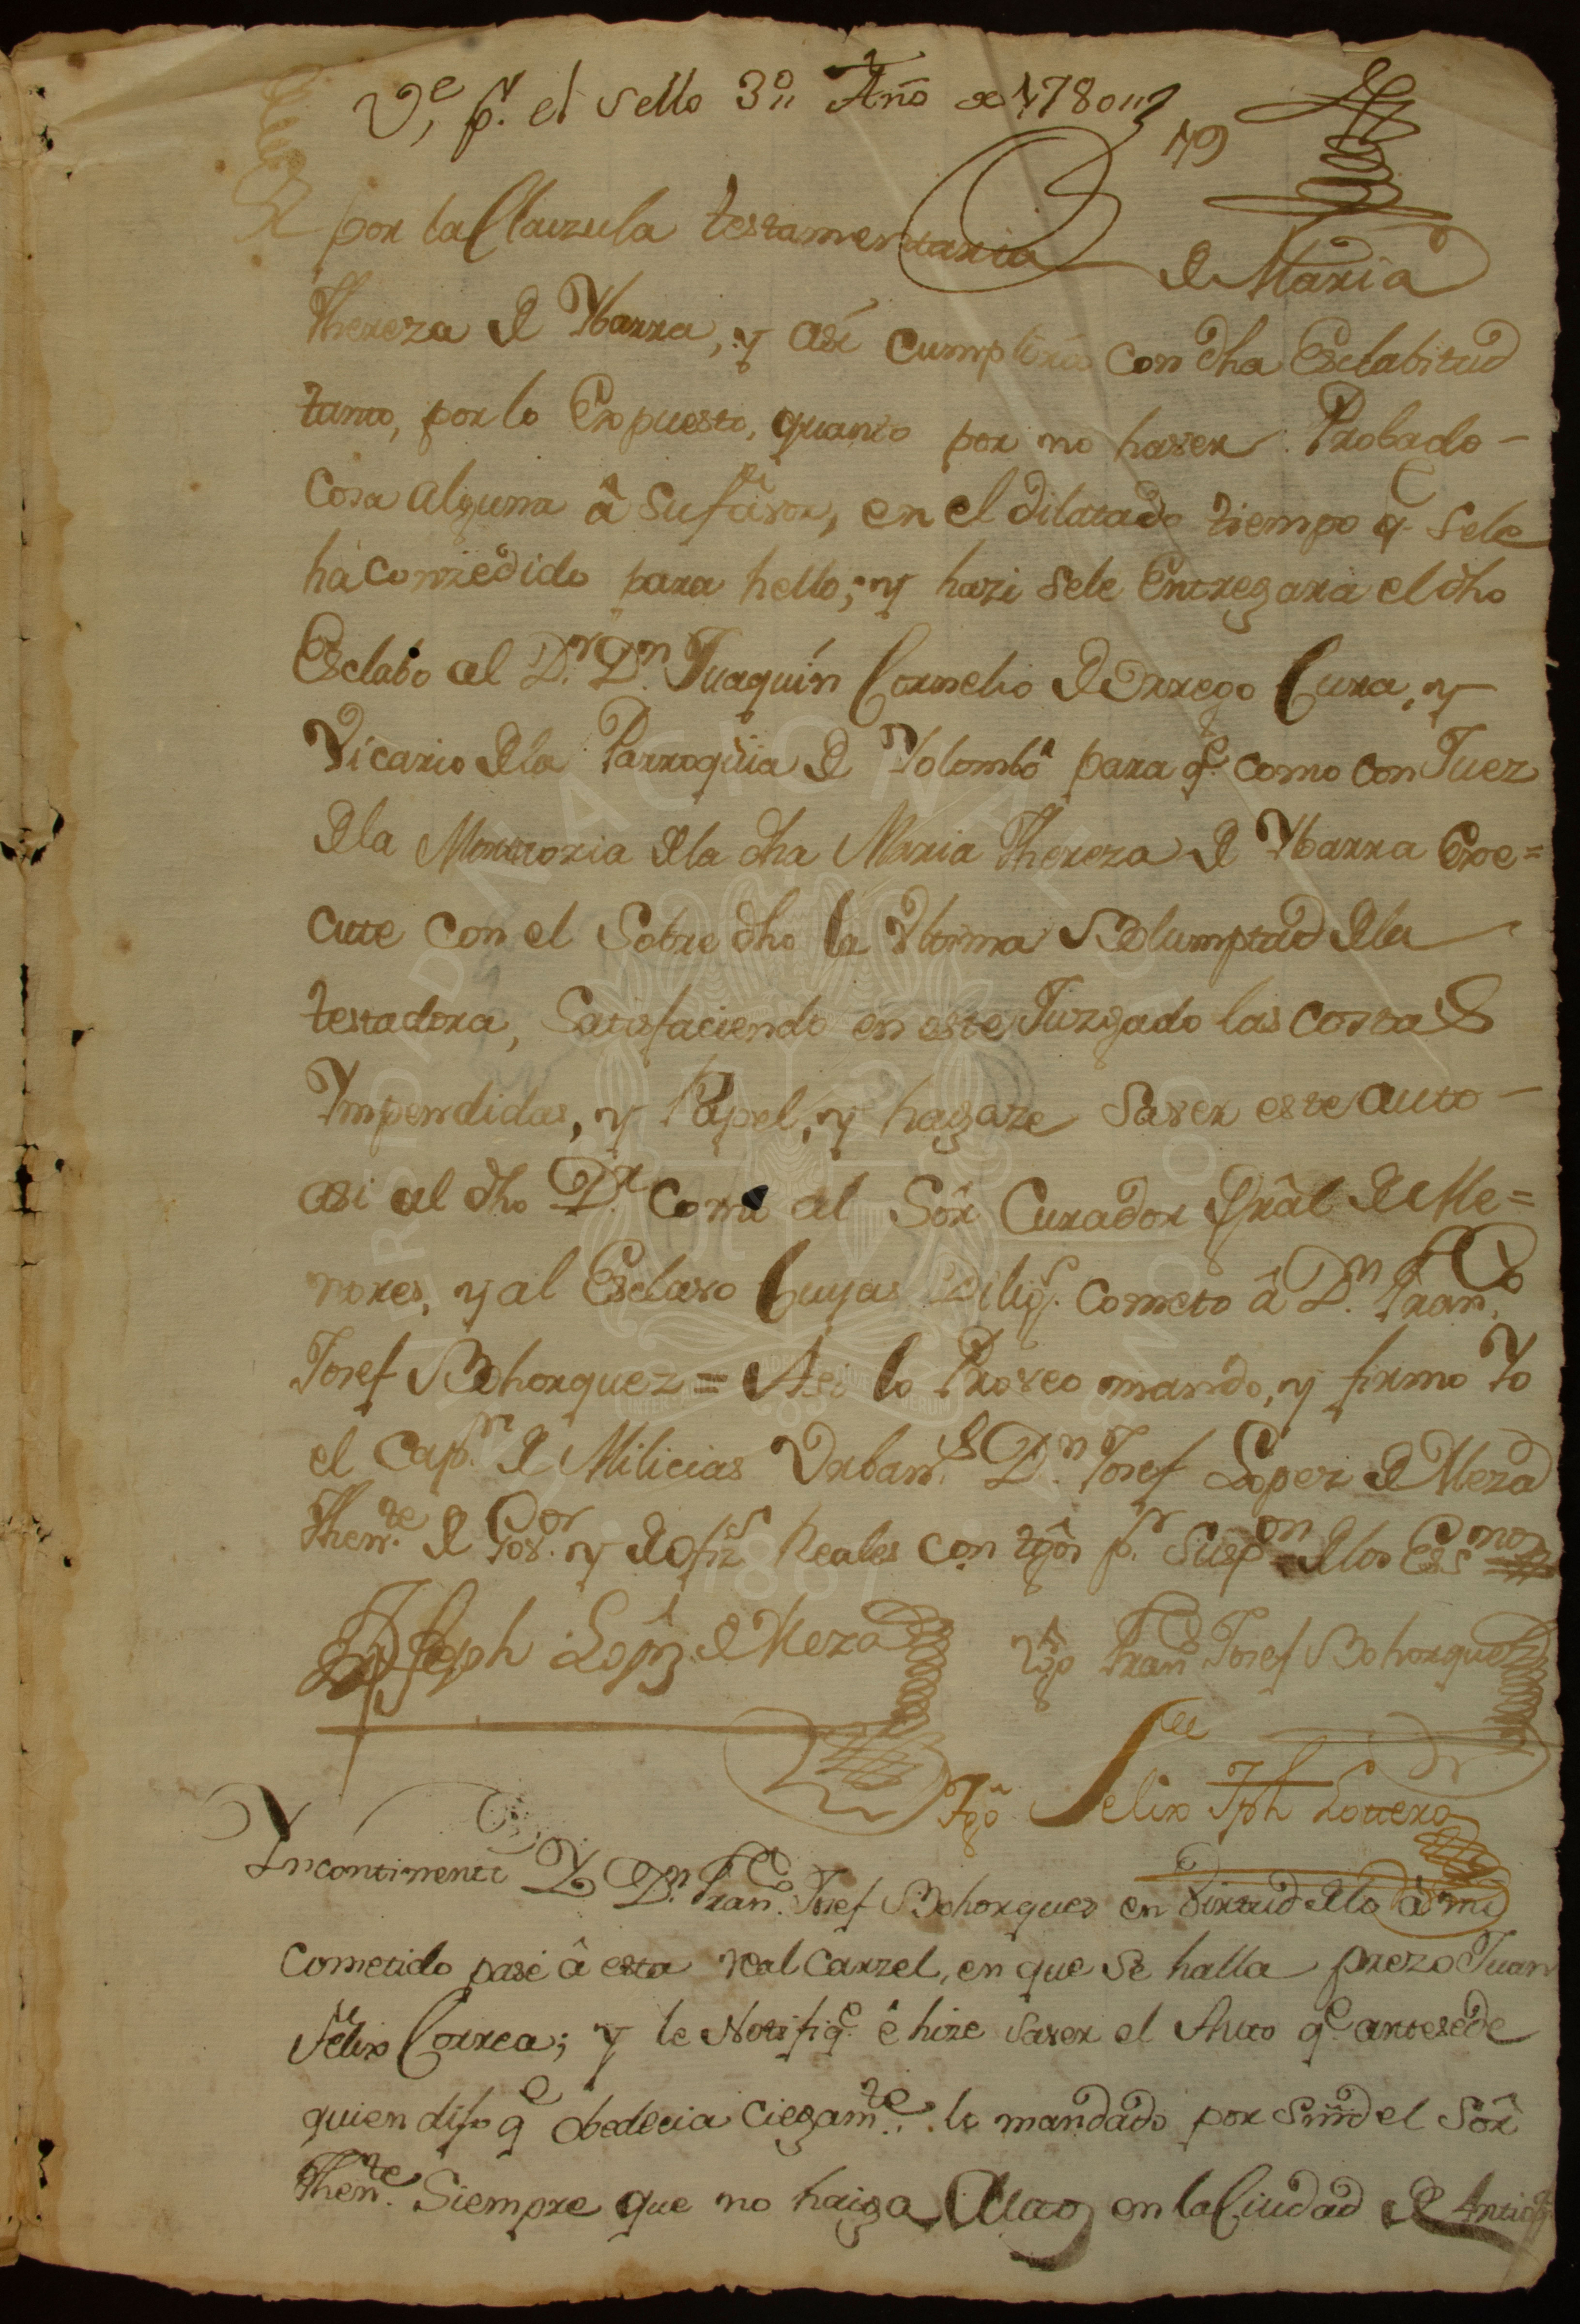 Ve, pr. el sello 3o,, Año de 1780,,
179
por la Clauzula testamentaria de Maria
Thereza de Ybarra, y asi cumplirá con dha Esclabitud
tanto, por lo Expuesto, quanto por no haver Probado -
Cosa alguna â su favor, en el dilatado tiempo q sele
há conzedido para hello; y hazi sele Entregara el dho
Esclabo al Dr. Dn. Juaquin Cornelio de Orrego Cura, y
Vicario dela Parroquia de Yolombô para qe como con Juez
dela Mortuoria dela dha Maria Thereza de Ybarra Exe=
cute con el Sobre dho la Vltima Volumptad dela
testadora, Satisfaciendo en este Juzgado las costas
Ympendidas, y Papel, y hagaze saver este auto -
asi al dho Dr. como al Sôr Curador Grâl de Me=
nores, y al Esclavo Cuyas Diligs. Cometo â Dn. Franco.
Josef Bohorquez = Asi lo Proveo mando, y firmo Yo
el Capn. de Milicias Vrbans. Dn. Josef Lopez de Meza
Thente. de Gor. y de Ofizs Reales con tgôs pr. Suspon delos Essnos
Joseph Lopz de Meza
tgô Franco Josef Bohorquez
Tgo Felix Jph Lottero
Yncontinenti Yo Dn. Franco. Josef Bohorques en Virtud delo â mi
cometido pasé â esta real Carzel, en que se halla prezo Juan
Felix Correa; y le Notifiqe. ê hize saver el Auto qe antesede
quien dijo qe obedecia ciegamte. lo mandado por Smrd el Sôr
Thente. Siempre que no haiga Auto en la Ciudad de Antioqa